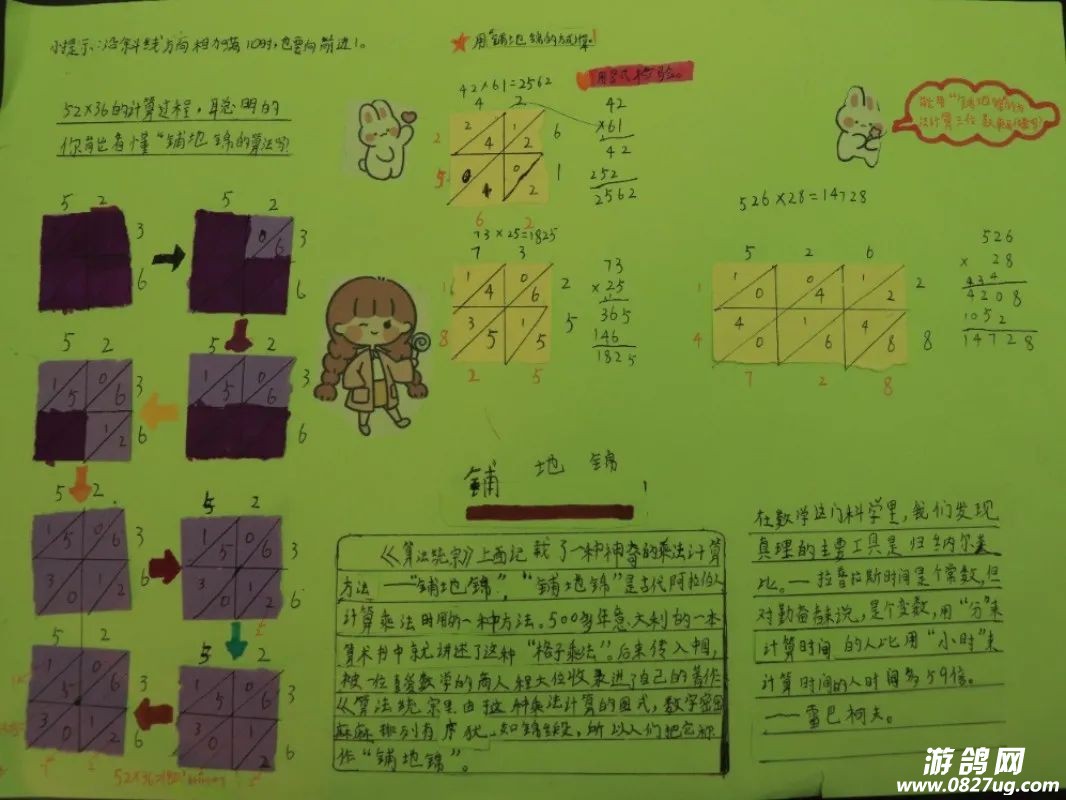 小提示:沿斜线方向相加满10时,也要向前进1。
52×36的计算过程,聪明的
你能看懂"铺地锦"的算法吗?
5 2
3
6
5 2
0 6 3
6
5 2
1 5 0 6 3
1 2 6
5 2
1 5 0 6 3
6
5 2
1 5 0 6 3
3 0 1 2
5 2
1 5 0 6 3
3 0 1 2 6
5 2
1 5 0 6 3
3 0 1 2 6
5 2
1 5 0 6 3
3 0 1 2
★用"铺地锦的方式算。
42×61=2562
4 2
2 2 4 1 2 6
5 0 4 0 2 1
6 2
用竖式检验。
42
×61
42
252
2562
73×25=1825
7 3
1 1 4 0 6 2
8 3 5 1 5 5
2 5
73
×25
365
146
1825
526×28=14728
5 2 6
1 1 0 0 4 1 2 2
4 4 0 1 6 4 8 8
7 2 8
526
× 28
4208
1052
14728
铺地锦
《算法统宗》上面记载了一种神奇的乘法计算
方法——"铺地锦","铺地锦"是古代阿拉伯人
计算乘法时用的一种方法。500多年意大利的一本
算术书中就讲述了这种"格子乘法"。后来传入中国,
被一位喜爱数学的商人程大位收录进了自己的著作
《算法统宗》由于这种乘法计算的图式,数字密密
麻麻排列有序犹如锦缎,所以人们把它称
作"铺地锦"。
在数学这门科学里,我们发现
真理的主要工具是归纳和类
比。—拉普拉斯时间是个常数,但
对勤奋者来说,是个变数,用"分"来
计算时间的人比用"小时"来
计算时间的人时间多59倍。
——雷巴柯夫。
游鸽网
www.0827ug.com